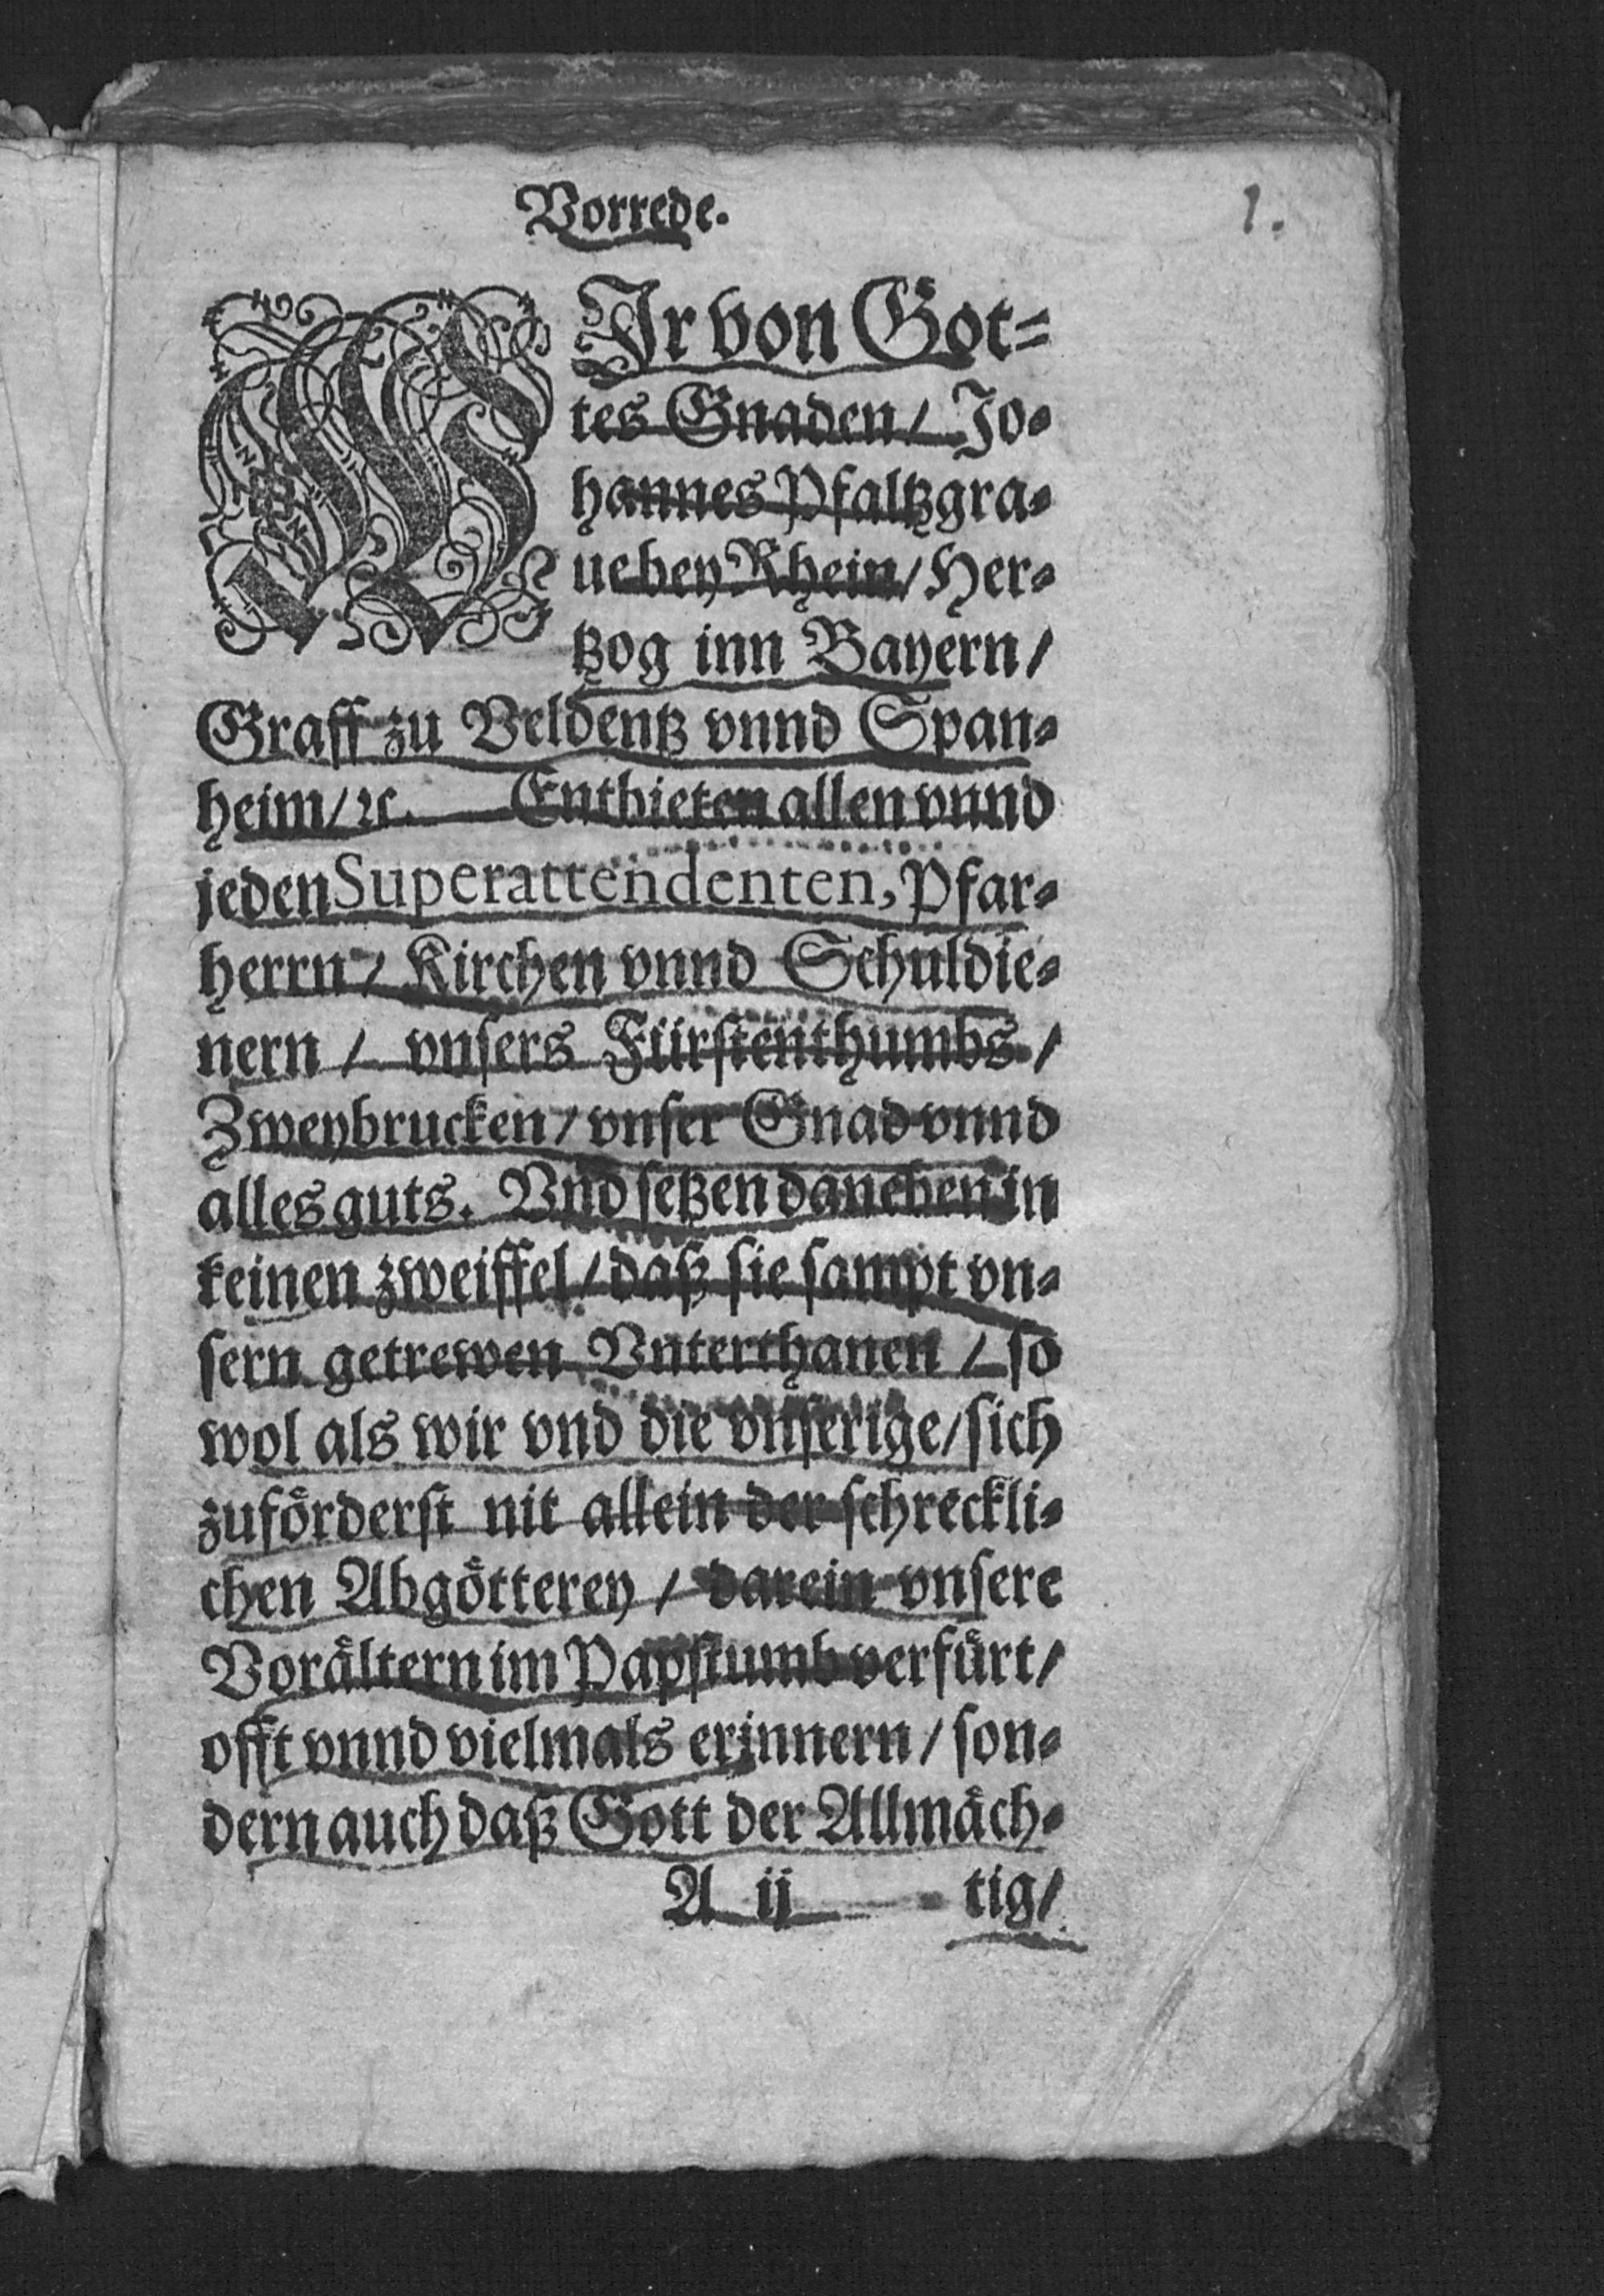 Vorrede.
1.
WIr von Got-
tes Gnaden / Jo-
hannes Pfaltzgra-
ue bey Rhein / Her-
tzog inn Bayern /
Graff zu Veldentz vnnd Span-
heim / ꝛc. Entbieten allen vnnd
jeden Superattendenten, Pfar-
herrn / Kirchen vnnd Schuldie-
nern / vnsers Fürstenthumbs /
Zweybrucken / vnser Gnad vnnd
alles guts. Vnd setzen daneben in
keinen zweiffel / daß sie sampt vn-
sern getrewen Vnterthanen / so
wol als wir vnd die vnserige / sich
zufoͤrderst nit allein der schreckli-
chen Abgoͤtterey / darein vnsere
Voraͤltern im Papstumb verfuͤrt /
offt vnnd vielmals erinnern / son-
dern auch daß Gott der Allmaͤch-
A ij tig /